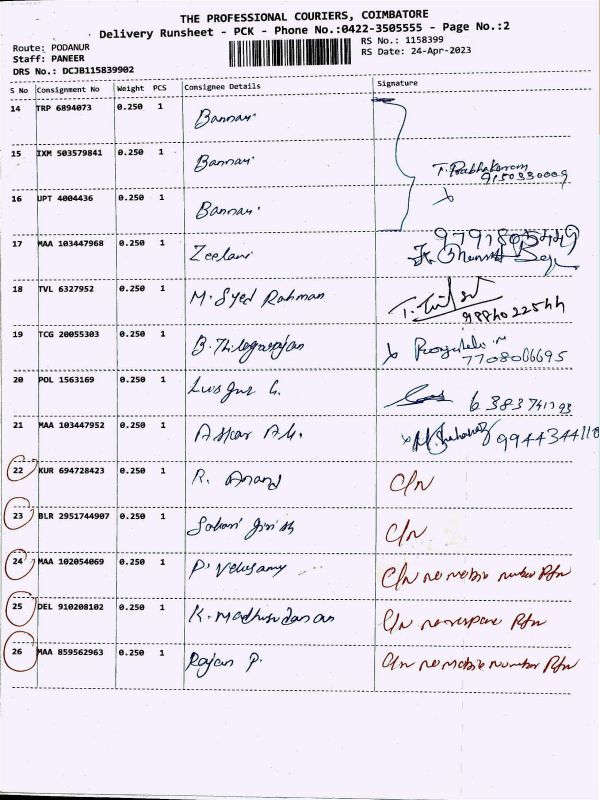 THE PROFESSIONAL COURIERS, COIMBATORE
Delivery Runsheet - PCK - Phone No.:0422-3505555 - Page No.:2
Route: PODANUR
RS No.: 1158399
Staff: PANEER
RS Date: 24-Apr-2023
DRS No.: DCJB115839902
S No Consignment No Weight PCS Consignee Details Signature
14 TRP 6894073 0.250 1 Bannari
15 IXM 503579841 0.250 1 Bannari T. Prabhakaran
9150330009
16 UPT 4004436 0.250 1 Bannari
17 MAA 103447968 0.250 1 Zeelani
18 TVL 6327952 0.250 1 M. Syed Rahman
9884022544
19 TCG 20055303 0.250 1 B. Thilagarajan
7708006695
20 POL 1563169 0.250 1
6383741793
21 MAA 103447952 0.250 1 Askar Ali.
9944344110
22 KUR 694728423 0.250 1 R. Anand C/N
23 BLR 2951744907 0.250 1 C/N
24 MAA 102054069 0.250 1 P. Velusamy C/N no mobile number Rtn
25 DEL 910208102 0.250 1 K. Madhusudanan C/N no response Rtn
26 MAA 859562963 0.250 1 Rajan P. C/N no mobile number Rtn